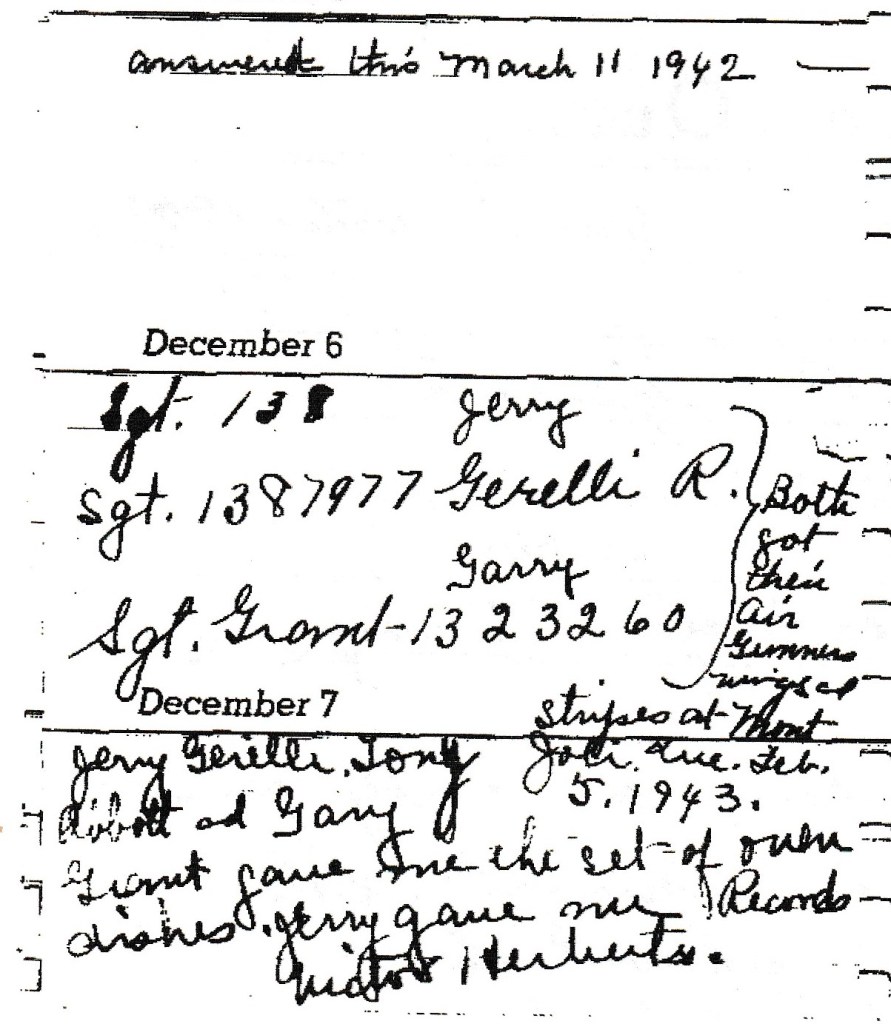 answered this March 11 1942
December 6
Sgt. 138 Jerry
Sgt. 1387977 Gerelli R.
Garry
Sgt. Grant-1323260
Both
got
their
Air
Gunners
wings ad
stripes at Mont
Joli. Que. Feb.
5. 1943.
December 7
Jerry Gerelli, Tony
Abbott ad Gary
Grant gave me the set of oven
dishes. Jerry gave me Records
Victor Herberts.